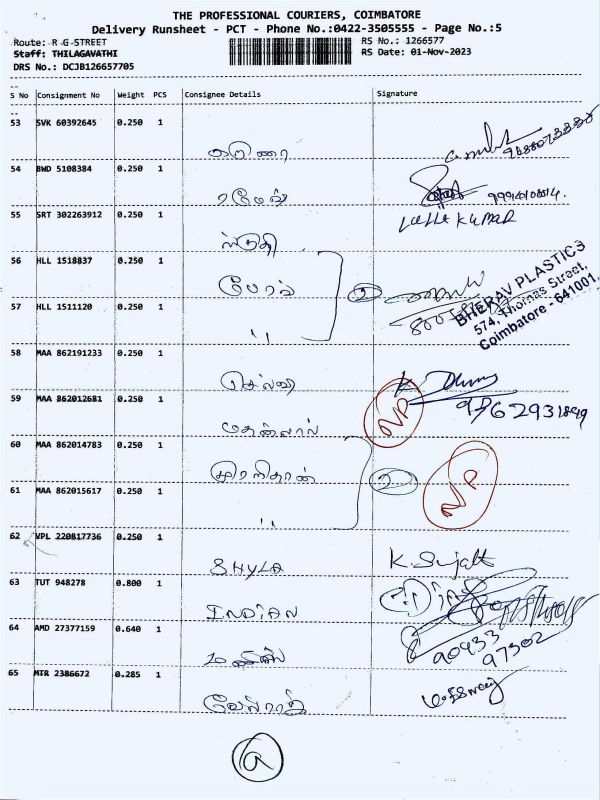 THE PROFESSIONAL COURIERS, COIMBATORE
Delivery Runsheet - PCT - Phone No.:0422-3505555 - Page No.:5
Route: R G STREET
RS No.: 1266577
Staff: THILAGAVATHI
RS Date: 01-Nov-2023
DRS No.: DCJB126657705
S No Consignment No Weight PCS Consignee Details Signature
53 SVK 60392645 0.250 1
54 BWD 5108384 0.250 1
ரமேஷ்
55 SRT 302263912 0.250 1
LALIT KUMAR
ஸ்ருதி
56 HLL 1518837 0.250 1
2
BHERAV PLASTICS
574, Thomas Street,
Coimbatore - 641001.
57 HLL 1511120 0.250 1
"
58 MAA 862191233 0.250 1
59 MAA 862012681 0.250 1
NP
மதன்லால்
60 MAA 862014783 0.250 1
2
NP
61 MAA 862015617 0.250 1
"
62 VPL 220817736 0.250 1
SHYLA
K. Sujatt
63 TUT 948278 0.800 1
INDIAN
64 AMD 27377159 0.640 1
90433
97302
65 MTR 2386672 0.285 1